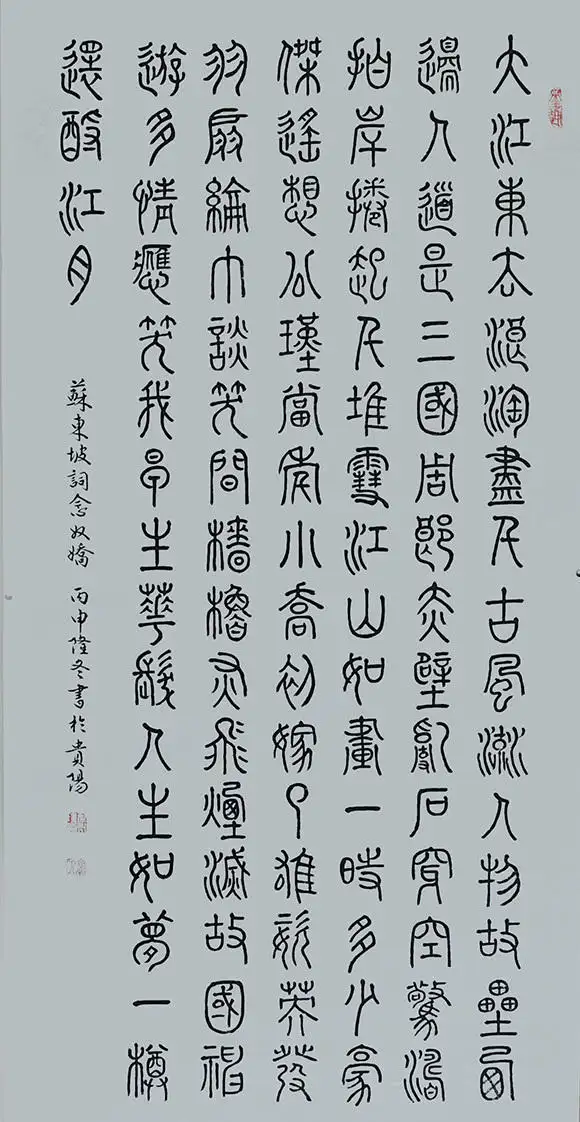 大江東去浪淘盡千古風流人物故壘西
邊人道是三國周郎赤壁亂石穿空驚濤
拍岸捲起千堆雪江山如畫一時多少豪
傑遙想公瑾當年小喬初嫁了雄姿英發
羽扇綸巾談笑間檣櫓灰飛煙滅故國神
遊多情應笑我早生華髮人生如夢一樽
還酹江月
蘇東坡詞念奴嬌 丙申隆冬書於貴陽